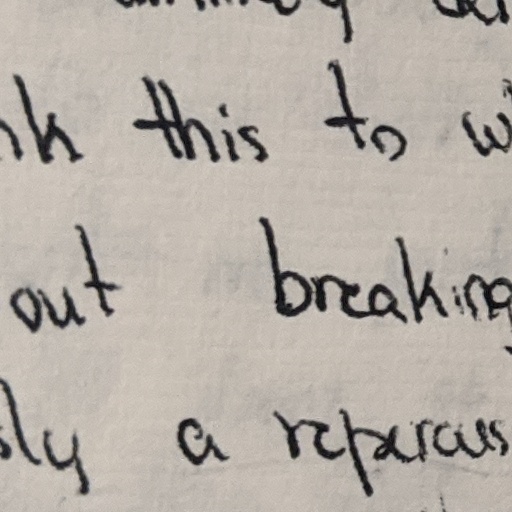 nk this to wi
out breaking
sly a repercus